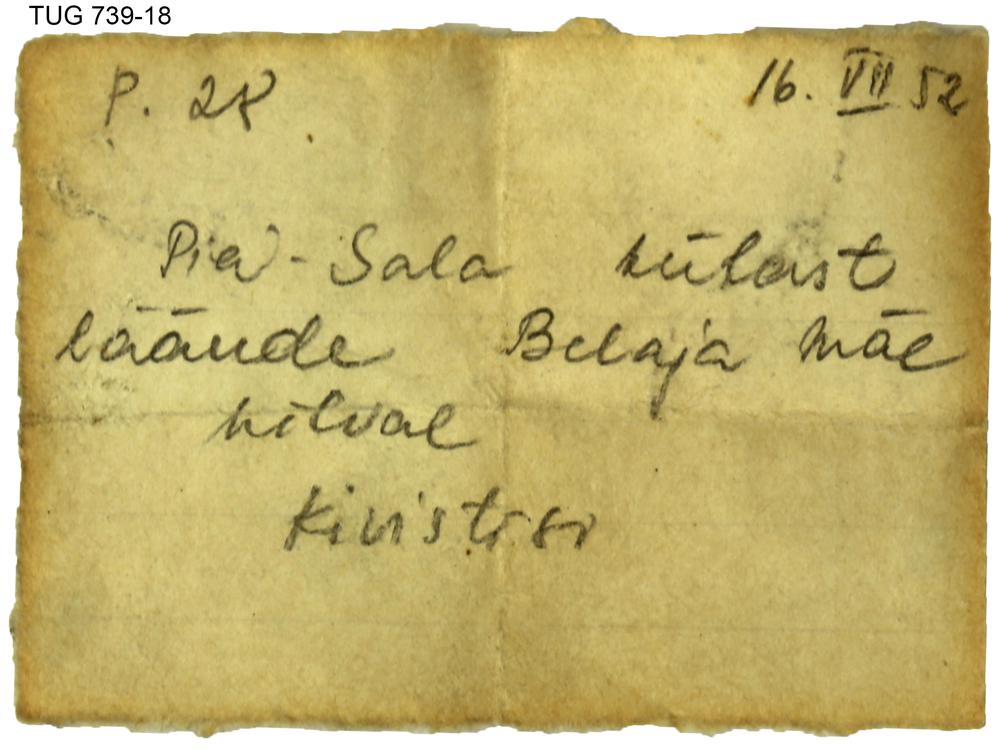 TUG 739-18
P. 28 16. VII 52
Sala külast
läände Belaja mäe
nõlval
Kivistisi